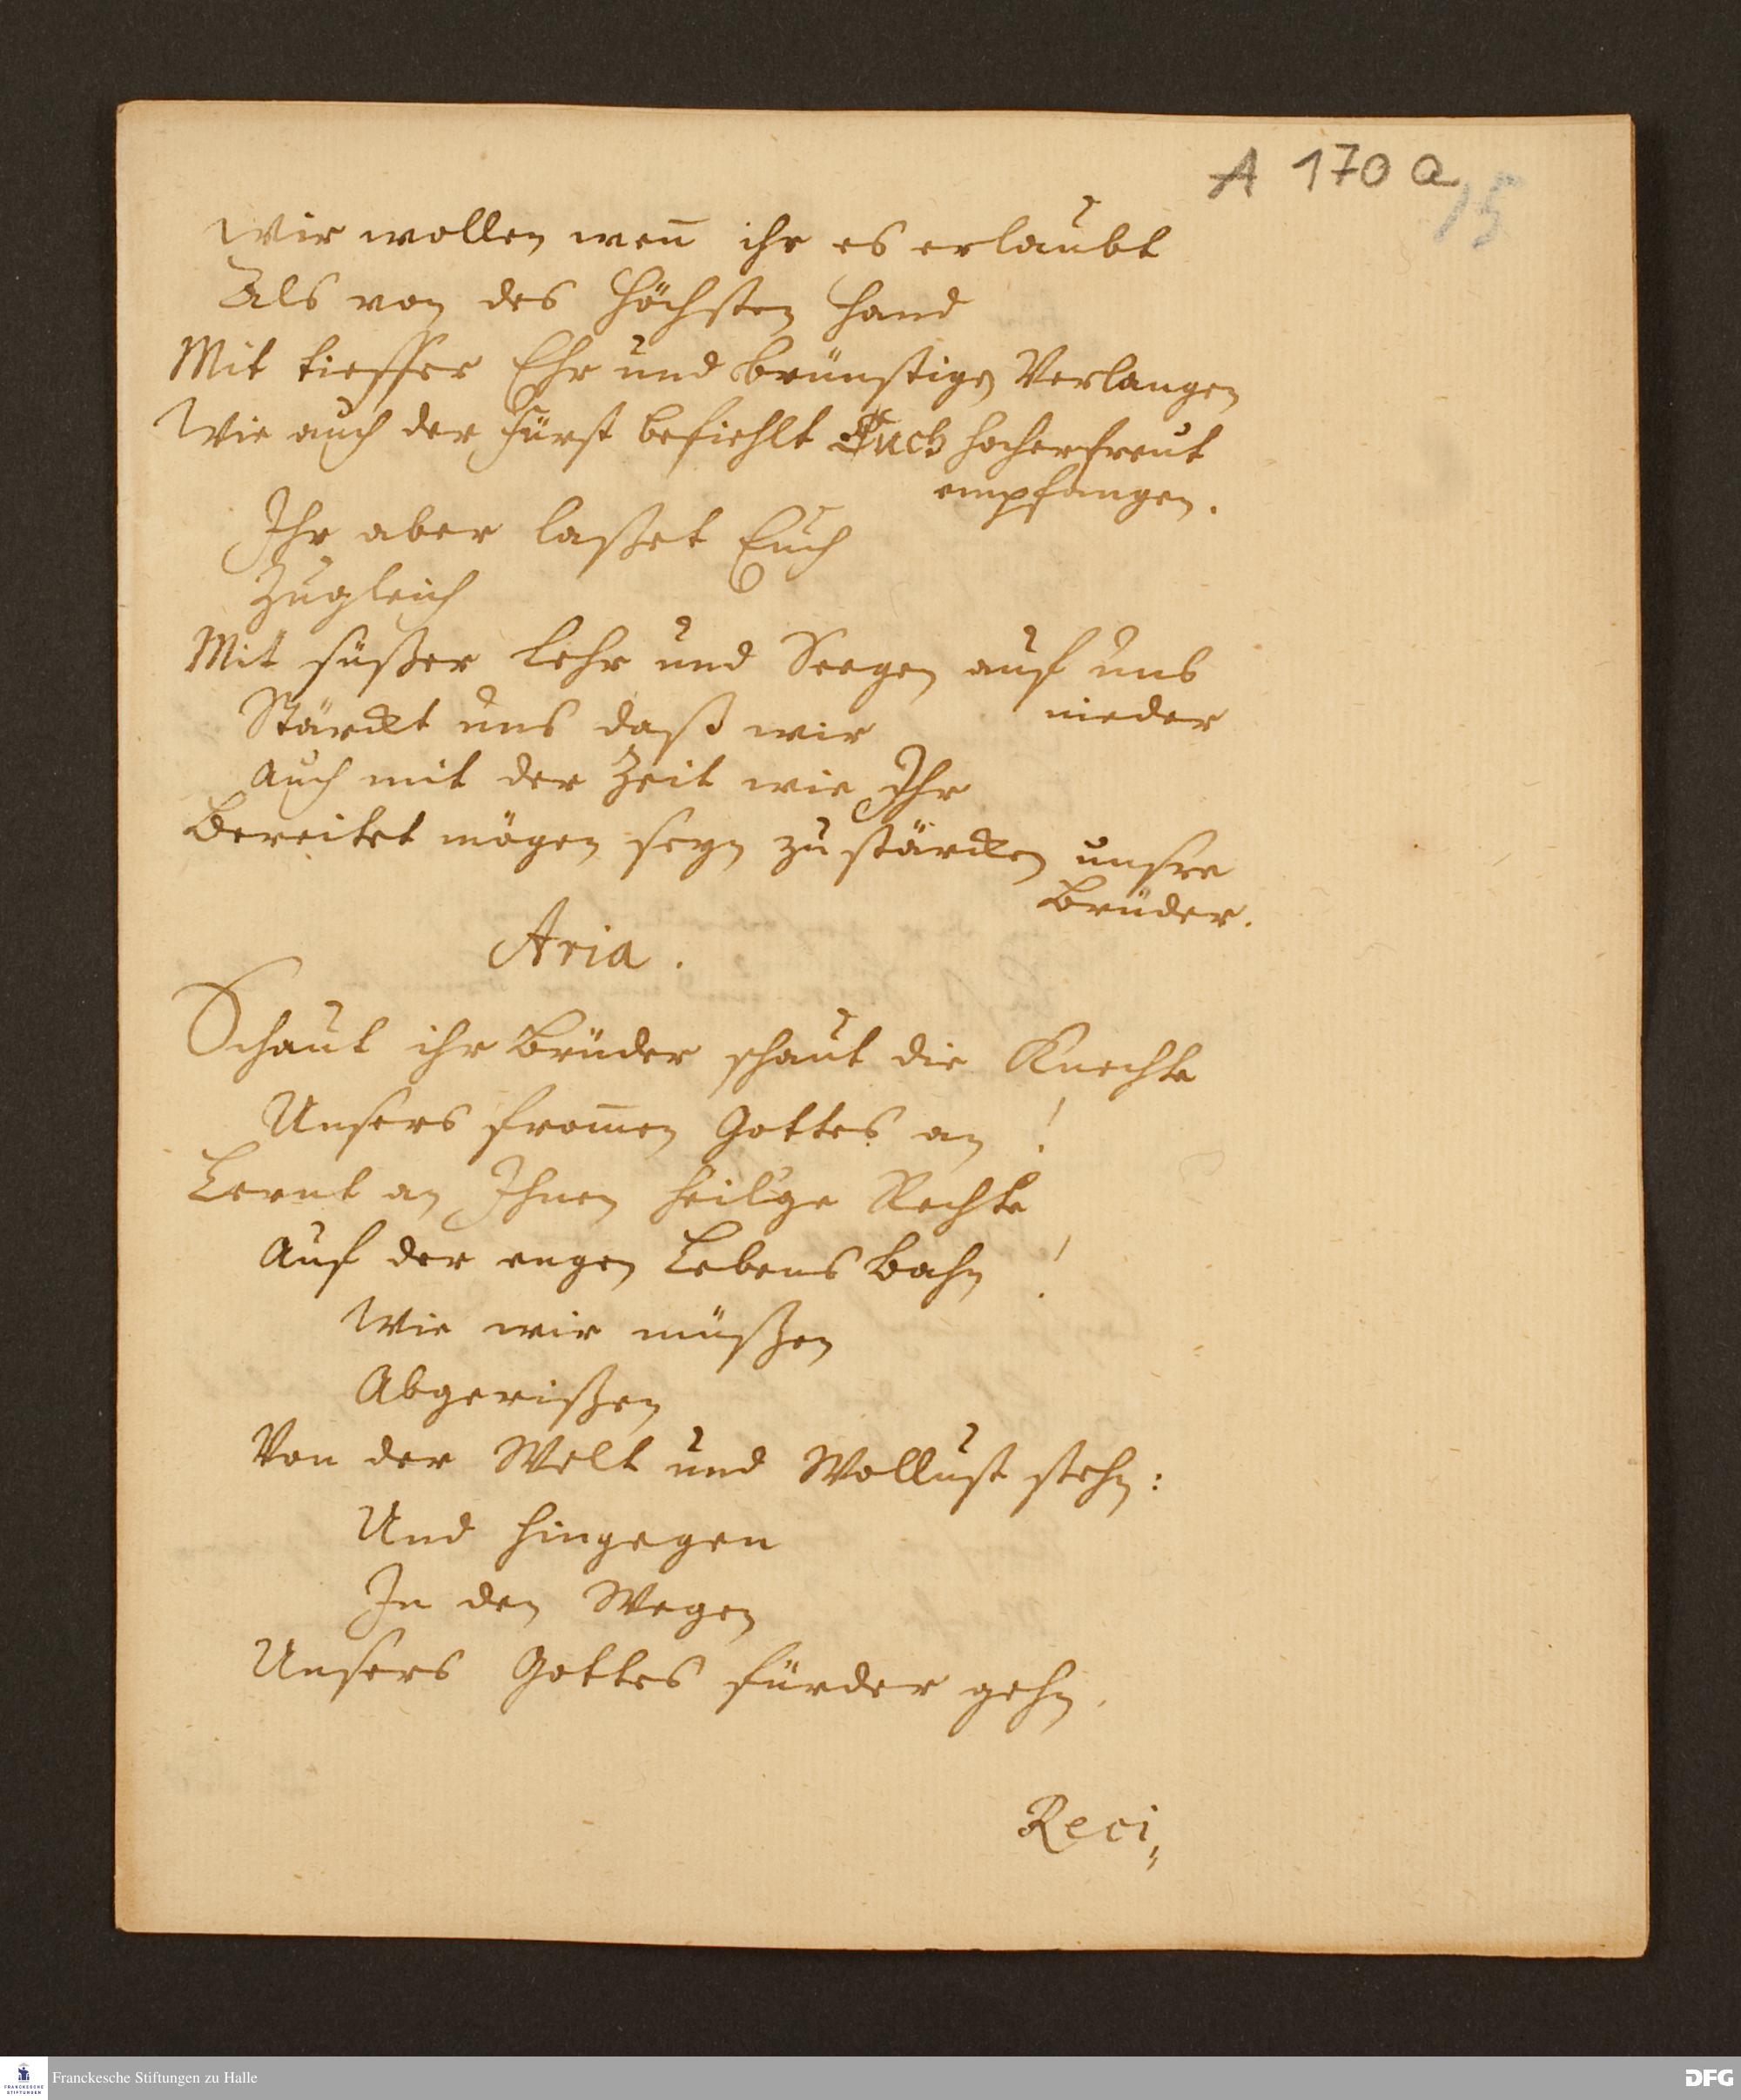 A 170 a
15
Wir wollen, weñ ihr es erlaubt
Als von des Höchsten Hand
Mit tieffer Ehr und brünstigen Verlangen
Wie auch der Fürst befiehlt Euch hocherfreut
empfangen.
Ihr aber laßet Euch
Zugleich
Mit süßer Lehr und Seegen auf uns
nieder
Stärckt uns daß wir
Auch mit der Zeit wie Ihr
Bereitet mögen seyn zu stärcken unsre
Brüder.
Aria.
Schaut ihr Brüder schaut die Knechte
Unsers from̃en Gottes an!
Lernt an Ihnen heilge Rechte
Auf der engen Lebens Bahn!
Wie wir müßen
Abgerißen
Von der Welt und Wollust stehn:
Und hingegen
In den Wegen
Unsers Gottes fürder gehn.
Reci,,
Franckesche Stiftungen zu Halle
FRANCKESCHE STIFTUNGEN
DFG